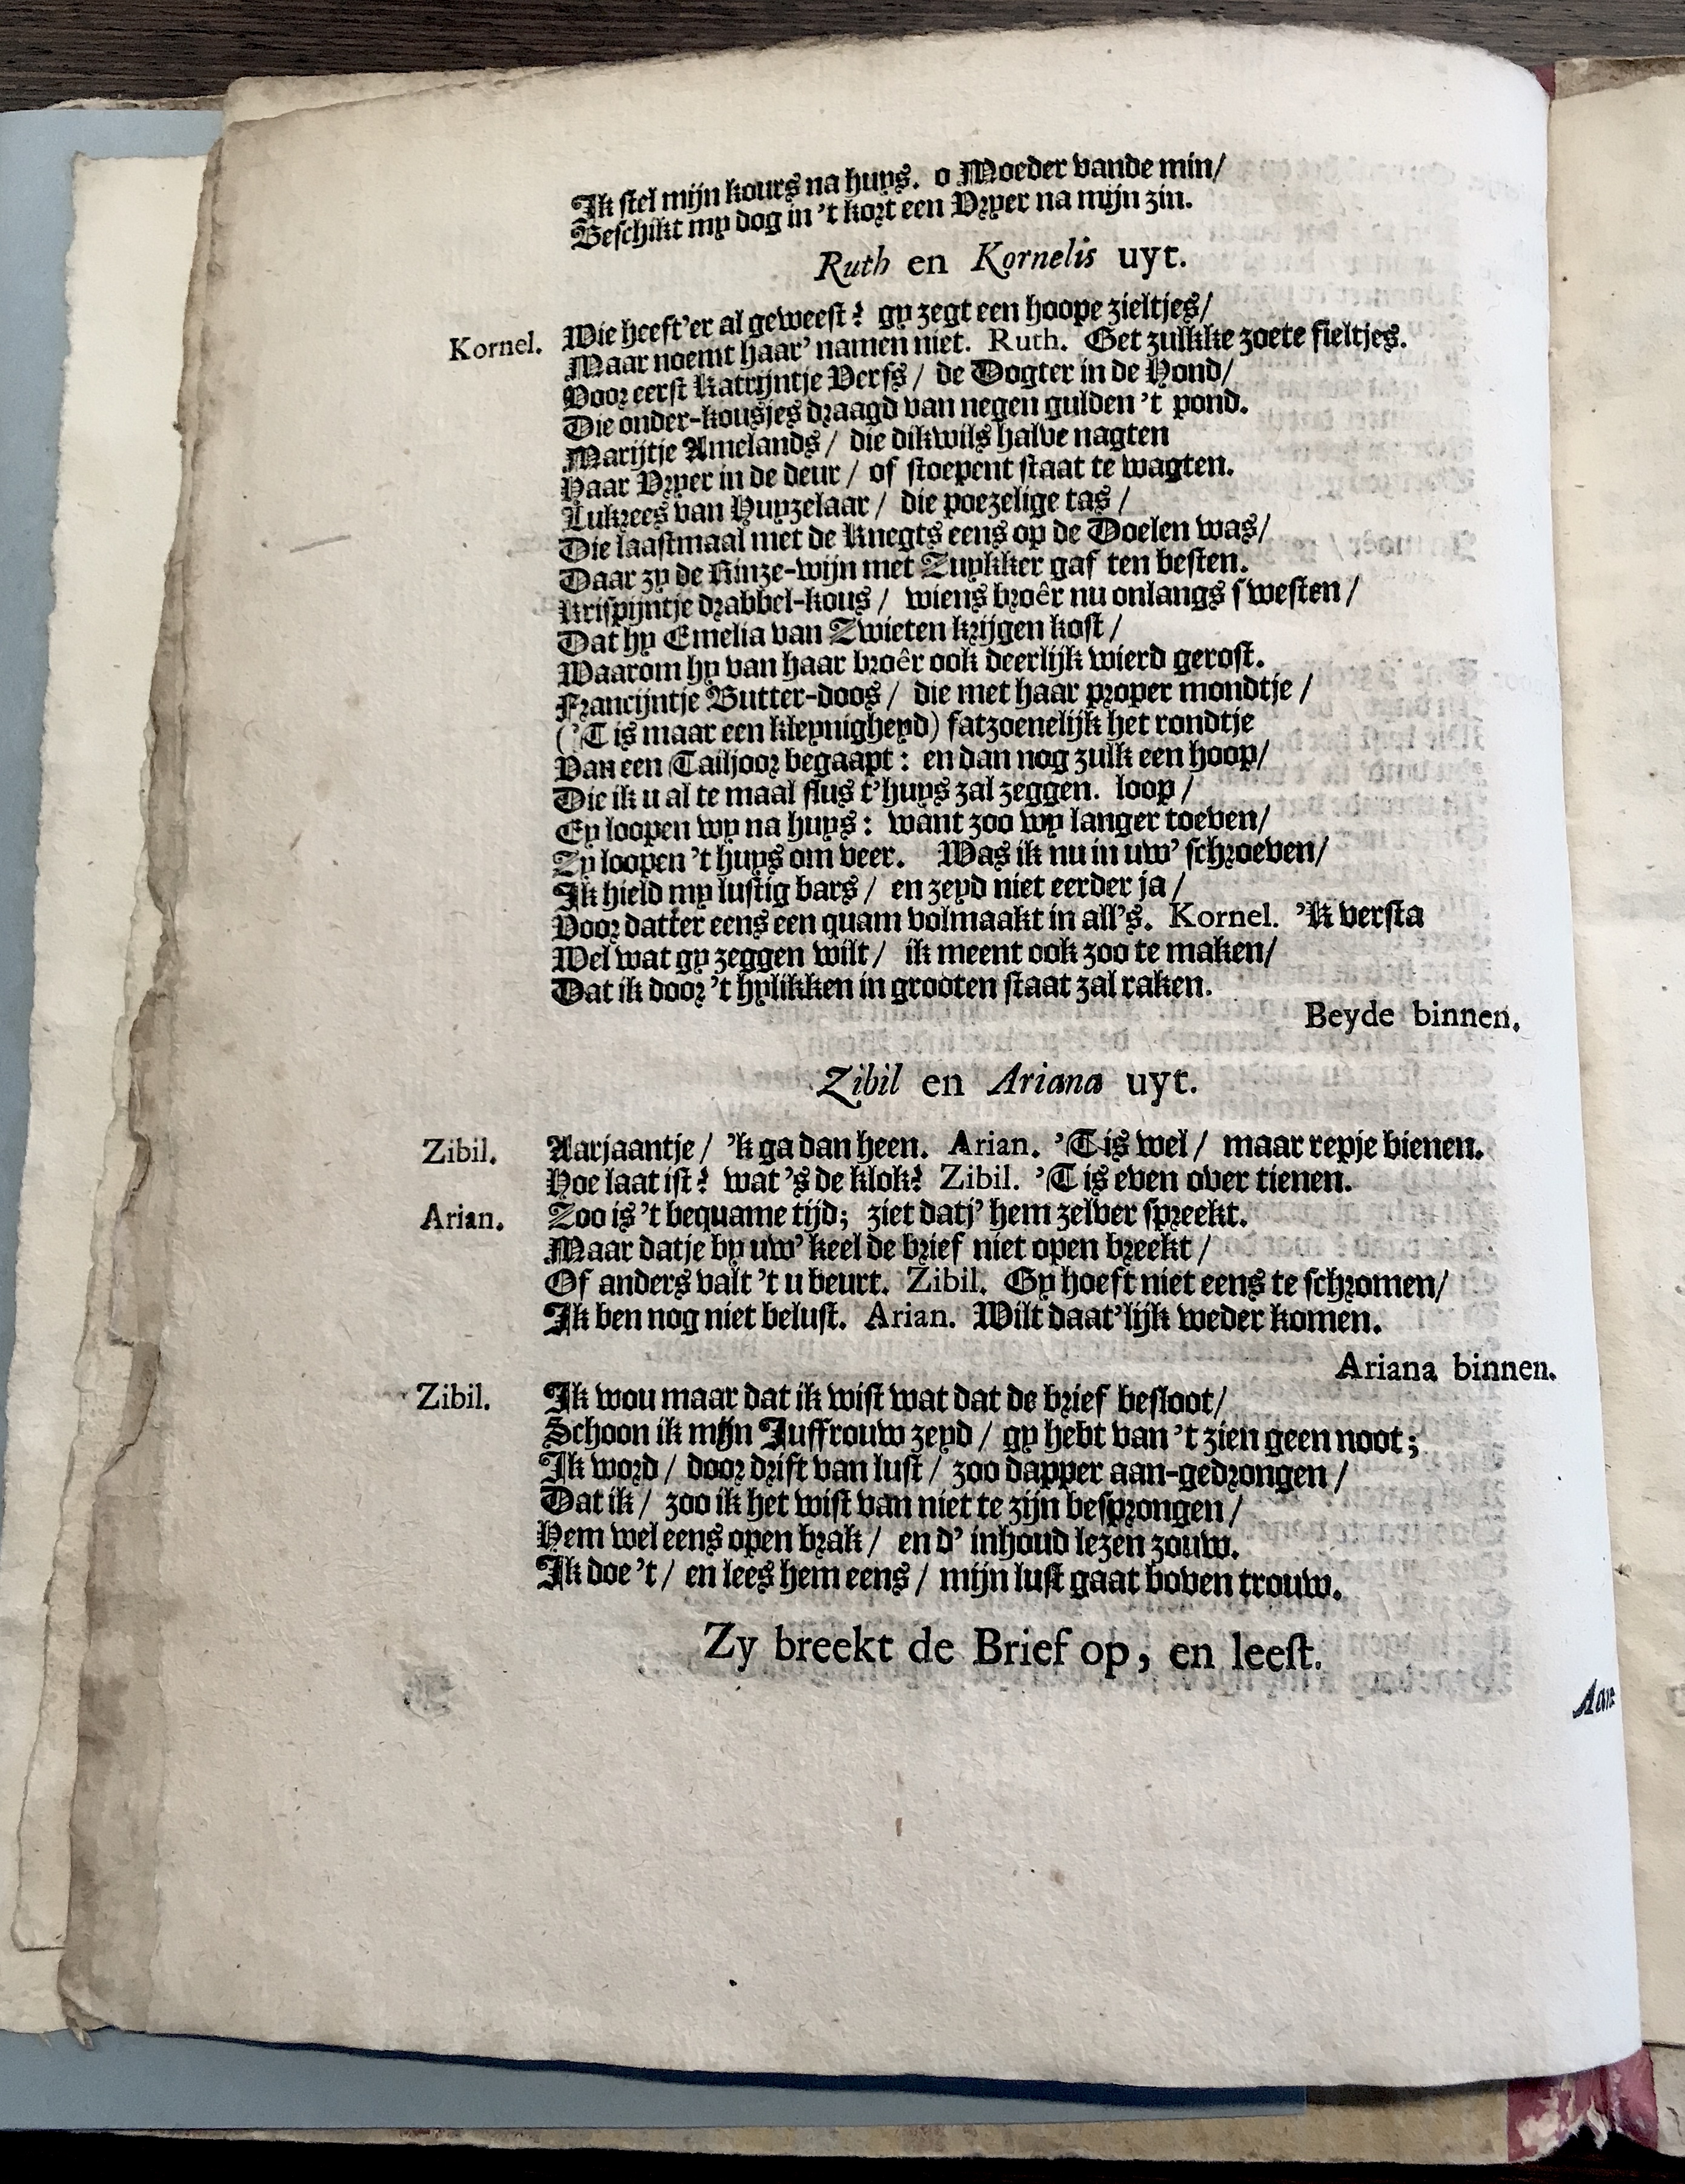 Ik stel mijn kours na huys. o Moeder vande min/
Beschikt my dog in 't kort een Vryer na mijn zin.
Ruth en Kornelis uyt.
Kornel. Wie heeft'er al geweest? gy zegt een hoope zieltjes/
Maar noemt haar' namen niet. Ruth. Get zulkke zoete fieltjes.
Voor eerst Katrijntje Verfs/ de Dogter in de Hond/
Die onder-kousjes draagd van negen gulden 't pond.
Marijtje Amelands/ die dikwils halve nagten
Haar Vryer in de deur/ of stoepent staat te wagten.
Lukrees van Huyzelaar/ die poezelige tas/
Die laastmaal met de Knegts eens op de Doelen was/
Daar zy de Rinze-wijn met Zuykker gaf ten besten.
Krispijntje drabbel-kous/ wiens broêr nu onlangs s'westen/
Dat hy Emelia van Zwieten krijgen kost/
Waarom hy van haar broêr ook deerlijk wierd gerost.
Francijntje Butter-doos/ die met haar proper mondtje/
('T is maar een kleynigheyd) fatzoenelijk het rondtje
Van een Tailjoor begaapt: en dan nog zulk een hoop/
Die ik u al te maal flus t'huys zal zeggen. loop/
Ey loopen wy na huys: want zoo wy langer toeven/
Zy loopen 't huys om veer. Was ik nu in uw' schroeven/
Ik hield my lustig bars/ en zeyd niet eerder ja/
Voor datter eens een quam volmaakt in all's. Kornel. 'K versta
Wel wat gy zeggen wilt/ ik meent ook zoo te maken/
Dat ik door 't hylikken in grooten staat zal raken.
Beyde binnen.
Zibil en Ariana uyt.
Zibil. Aarjaantje/ 'k ga dan heen. Arian. 'T is wel/ maar repje bienen.
Hoe laat ist? wat 's de klok? Zibil. 'T is even over tienen.
Arian. Zoo is 't bequame tijd; ziet datj' hem zelver spreekt.
Maar datje by uw' keel de brief niet open breekt/
Of anders valt 't u beurt. Zibil. Gy hoeft niet eens te schromen/
Ik ben nog niet belust. Arian. Wilt daat'lijk weder komen.
Ariana binnen.
Zibil. Ik wou maar dat ik wist wat dat de brief besloot/
Schoon ik mijn Juffrouw zeyd/ gy hebt van 't zien geen noot;
Ik word/ door drift van lust/ zoo dapper aan-gedrongen/
Dat ik/ zoo ik het wist van niet te zijn besprongen/
Hem wel eens open brak/ en d' inhoud lezen zouw.
Ik doe 't/ en lees hem eens/ mijn lust gaat boven trouw.
Zy breekt de Brief op, en leest.